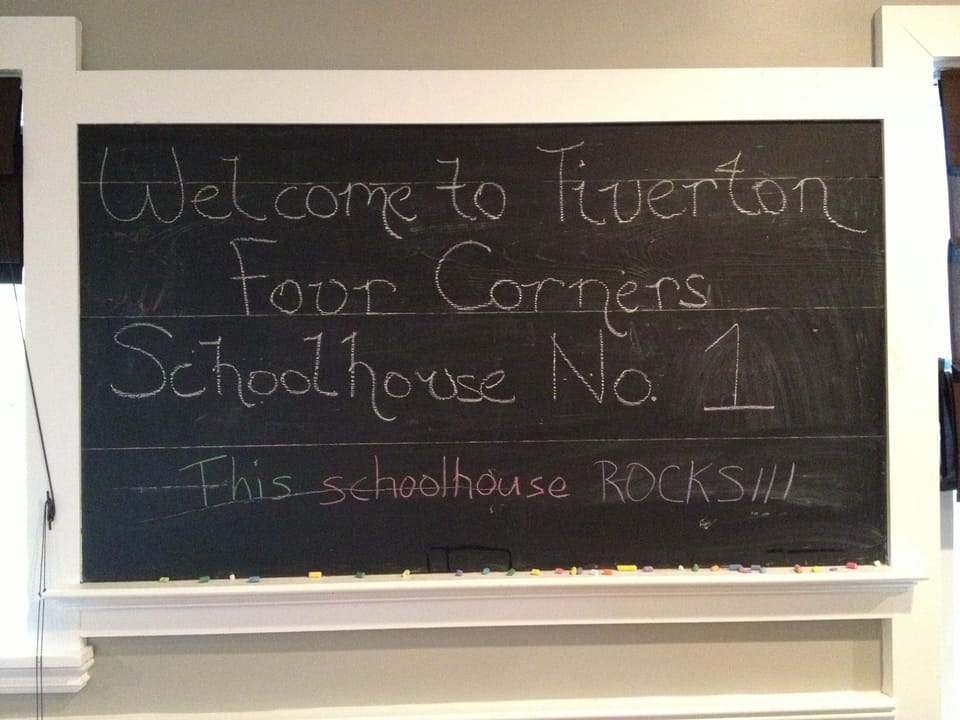 Welcome to Tiverton
Four Corners
Schoolhouse No. 1
This schoolhouse ROCKS!!!